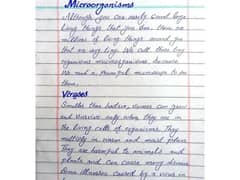 Microorganisms
Although you can easily count large
living things that you see, there are
millions of living things around you
that are very tiny. We call these tiny
organisms microorganisms because
We need a powerful microscope to see
them.
Viruses
Smaller than bacteria, viruses can grow
and survive only when they are in
the living cells of organisms. They
multiply in warm and moist places.
They are harmful to animals and
plants and can cause many diseases.
Some illnesses caused by a virus in